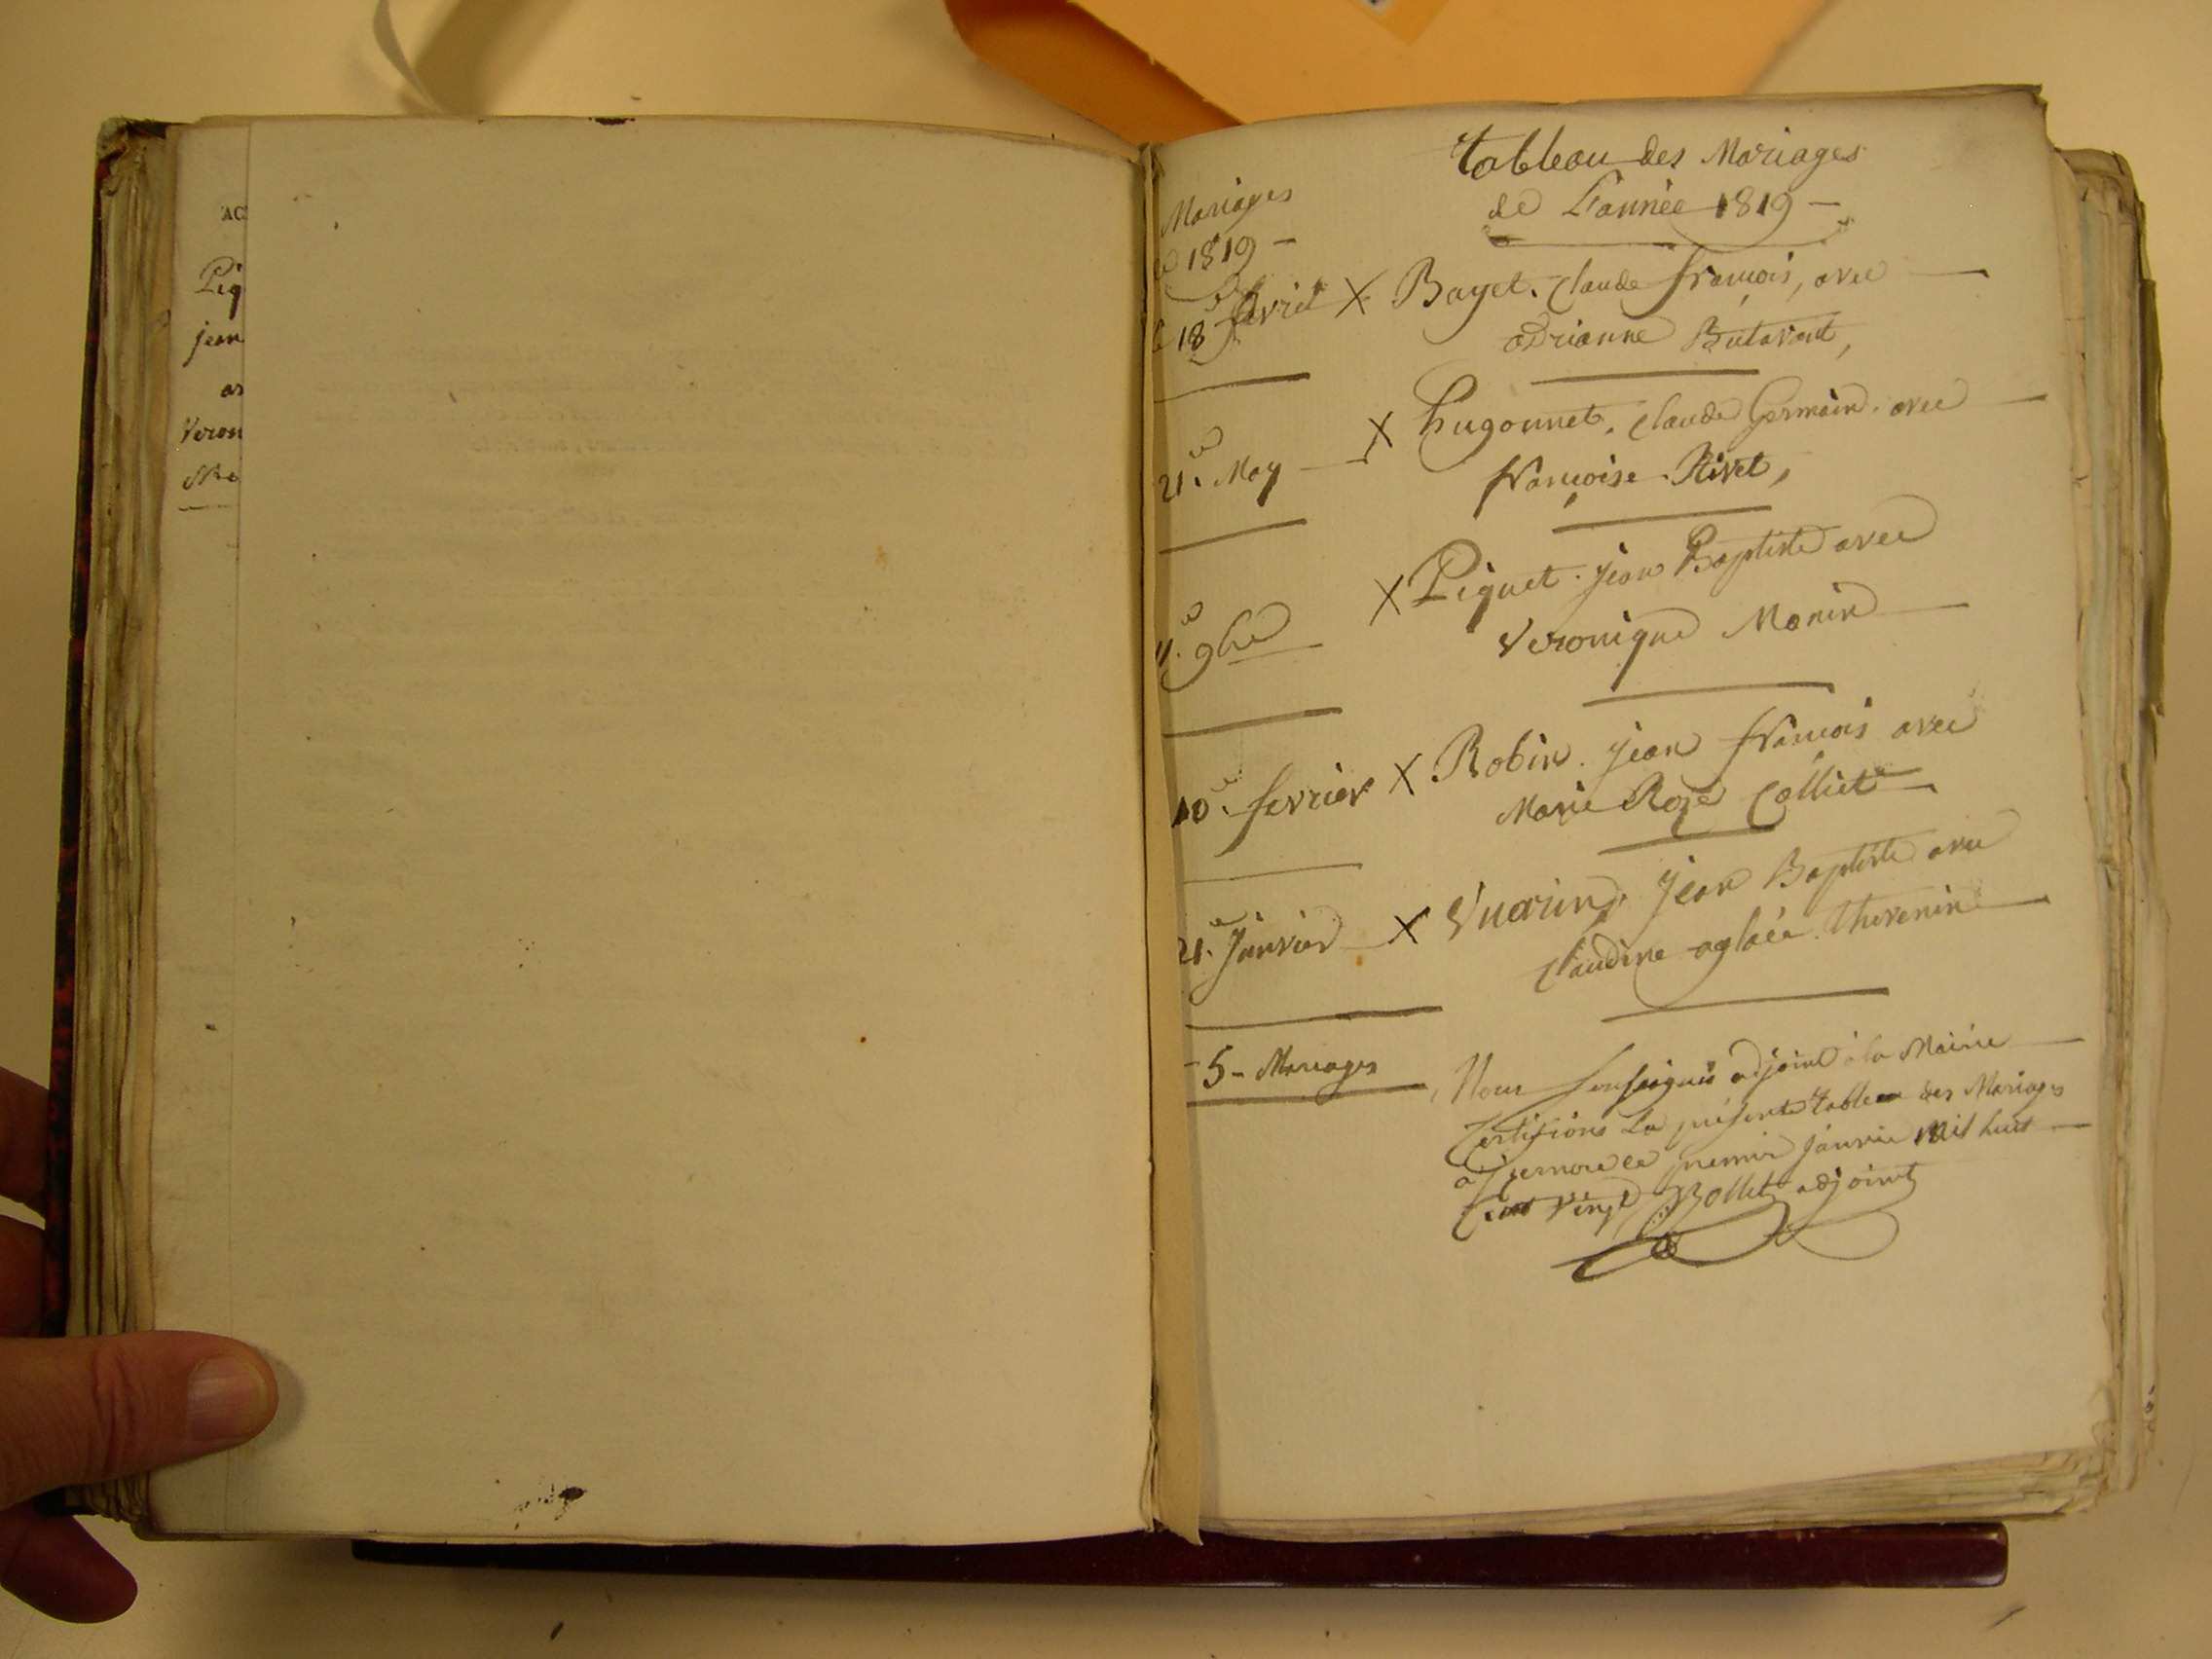 AC
Piq
jean
av
Veron
tableau des Mariages
de L'année 1819 —
Mariages
1819 —
18e avril X Bayet. Claude françois, avec
adrianne Butavant,
21e. May — X hugonnet. Claude Germain. avec
françoise Rivet,
11.e 9bre X Piquet. jean Baptiste avec
Veronique Monin
10e. fevrier X Robin. jean françois avec
Marie Roze Colliet
21.e Janvier X Vuarin, Jean Baptiste avec
Claudine aglaée Thevenin
- 5 - Mariages
Nous soussigné adjoint à la Mairie
Certifions le présente tableau des Mariages
a le premier janvier mil huit
Cent Vingt Bollet adjoint